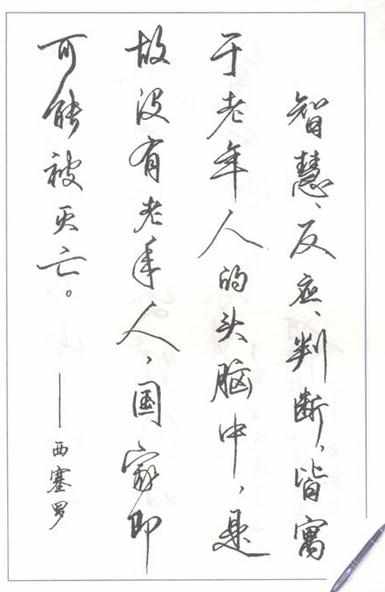 智慧、反应、判断，皆寓
于老年人的头脑中，是
故没有老年人，国家即
可能被灭亡。
——西塞罗